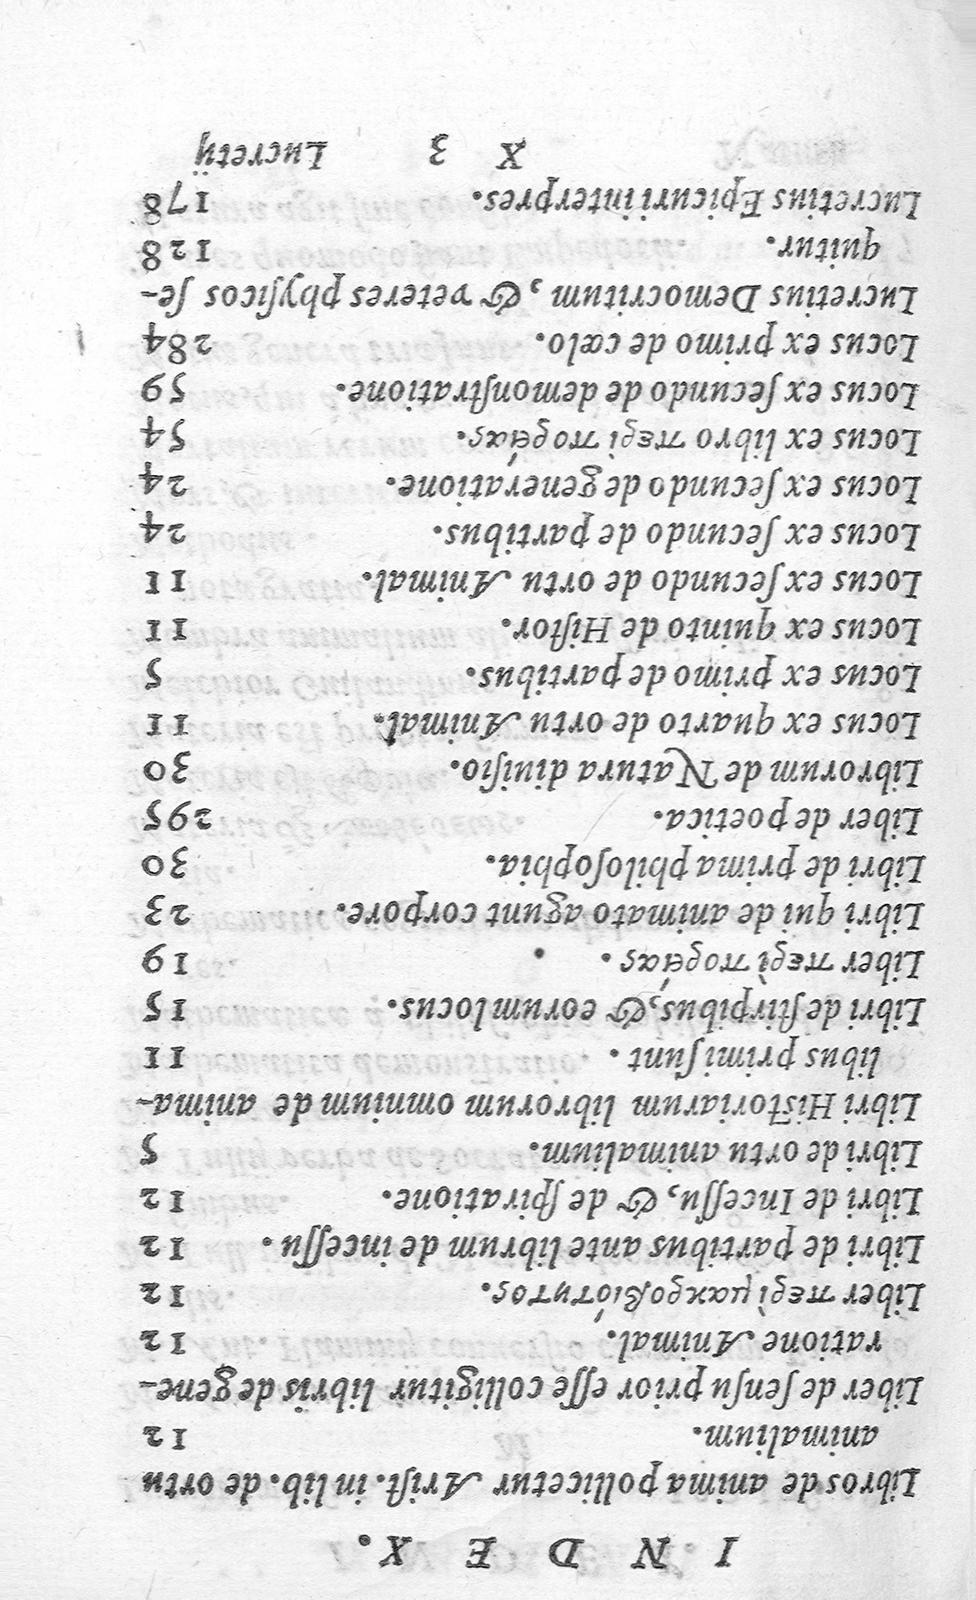 I N D E X.
Libros de anima pollicetur Arist. in lib. de ortu
animalium. 12
Liber de sensu prior esse colligitur libris de gene-
ratione Animal. 12
Liber περὶ μακροβιότητος. 12
Libri de partibus ante librum de incessu. 12
Libri de Incessu, & de spiratione. 12
Libri de ortu animalium. 5
Libri Historiarum librorum omnium de anima-
libus primi sunt. 11
Libri de stirpibus, & eorum locus. 15
Liber περὶ πορείας. 19
Libri qui de animato agunt corpore. 23
Libri de prima philosophia. 30
Liber de poetica. 295
Librorum de Natura diuisio. 30
Locus ex quarto de ortu Animal. 11
Locus ex primo de partibus. 5
Locus ex quinto de Histor. 11
Locus ex secundo de ortu Animal. 11
Locus ex secundo de partibus. 24
Locus ex secundo de generatione. 24
Locus ex libro περὶ πορείας. 54
Locus ex secundo de demonstratione. 59
Locus ex primo de cœlo. 284
Lucretius Democritum, & veteres physicos se-
quitur. 128
Lucretius Epicurii interpres. 178
X 3 Lucretij